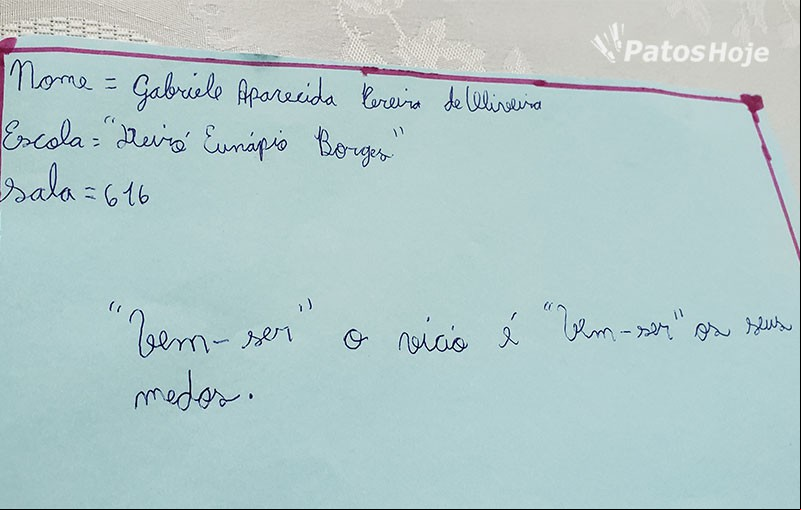 PatosHoje
Nome = Gabriele Aparecida Pereira de Oliveira
Escola = "Deiró Eunápio Borges"
Sala = 616
"Vem-ser" o vício é "Vem-ser" os seus
medos.